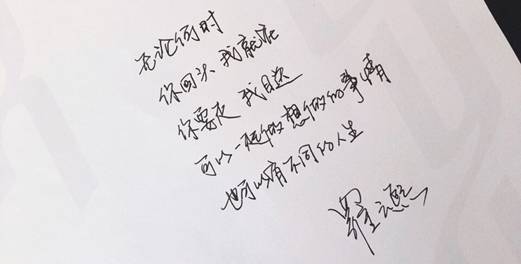 无论何时
你回头 我就在
你要走 我目送
可以一起做想做的事情
也可以有不同的人生
罗云熙